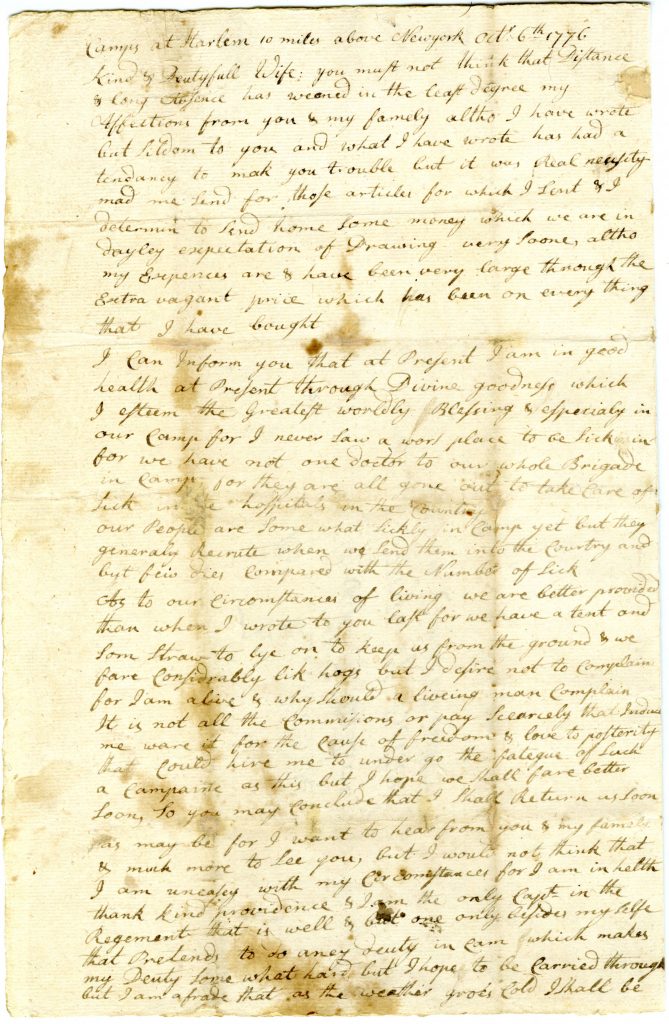 Camps at Harlem 10 miles above Newyork Octr. 6th 1776
Kind & Deutyfull Wife; you must not think that Distance
& long Absence has weaned in the least degree my
Affections from you & my family altho I have wrote
but Sildom to you and what I have wrote has had a
tendancy to mak you trouble but it was Real necisity
mad me send for those articles for which I Sent & I
determin to Send home Some money which we are in
dayley expectation of Drawing very Soone, altho
my Expences are & have been very large through the
Extra vagant price which has been on every thing
that I have bought
I Can Inform you that at Present I am in good
health at Present through Divine goodness which
I esteem the Greatest worldly Blessing & especialy in
our Camp for I never saw a wors place to be Sick in
for we have not one doctor to our whole Brigade
in Camp for they are all gone out to take Care of
Sick in the hospitals in the Country
our People are Some what Sickly in Camp yet but they
generaly Recrute when we Send them into the Courtry and
byt few dies Compared with the Number of Sick
As to our Circomstances of living we are better provided
than when I wrote to you last for we have a tent and
Som Straw to lye on to keep us from the ground & we
fare Considrably lik hogs but I desire not to Complain
for I am alive & why Should a liveing man Complain
It is not all the Commisions or pay Scearcely that Induce
me ware it for the Cause of freedom & love to posterity
that Could hire me to under go the fategue of Such
a Campaine as this but I hope we Shall fare better
Soon, So you may Conclude that I Shall Return as Soon
as may be for I want to hear from you & my famely
& much more to See you, but I would not think that
I am uneasey with my Circomstances for I am in helth
thank kind providence & I am the only Capt. in the
Regement that is well & but one only besides my Selfe
that Pretends to do aney deuty in Cam which makes
my Deuty Some what hard but I hope to be Carried through
but I am afrade that as the weather groes Cold I Shall be